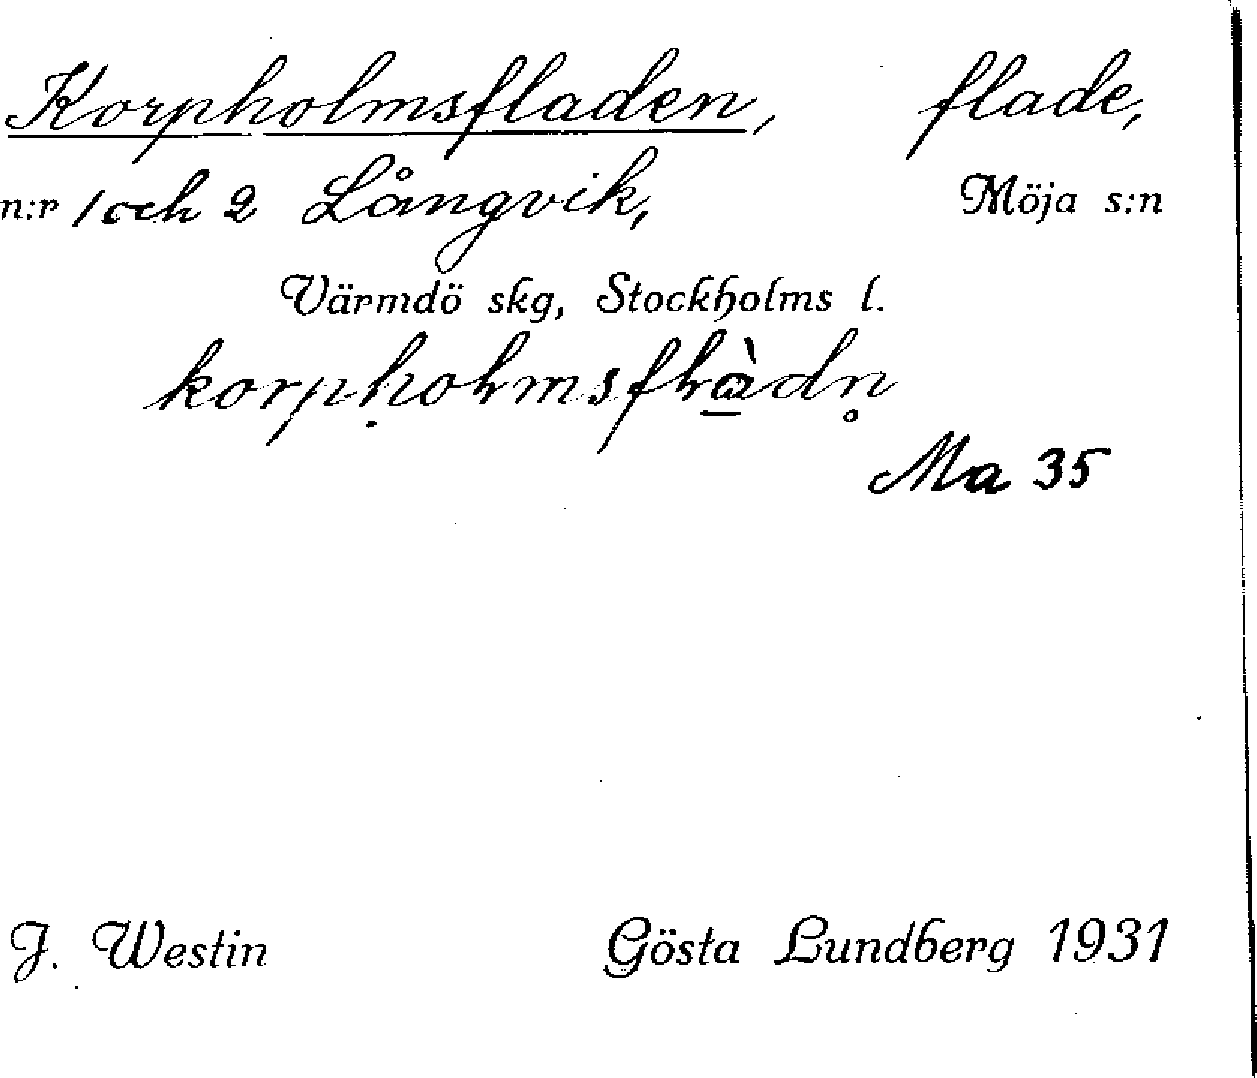 Korpholmsfladen, flade,
n:r 1 och 2 Långvik, Möja s:n
Värmdö skg, Stockholms l.
Ma 35
J. Westin Gösta Lundberg 1931